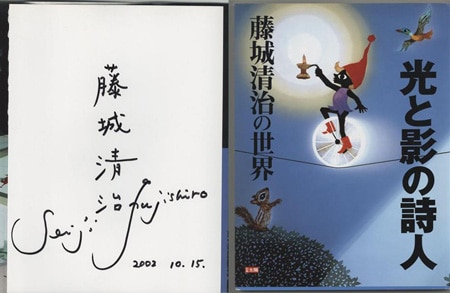 藤城清治
Seiji Fujishiro
2002 10.15.
光と影の詩人
藤城清治の世界